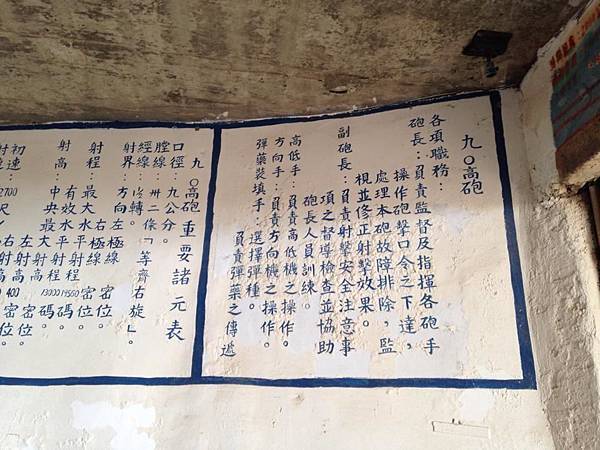 九〇高砲
各項職務：
砲長：負責監督及指揮各砲手
操作砲擊口令之下達，
處理本砲故障排除，監
視並修正射擊效果。
副砲長：負責射擊安全注意事
項之督導檢查並協助
砲長人員訓練。
高低手：負責高低機之操作。
方向手：負責方向機之操作。
彈藥裝填手：選擇彈種。
負責彈藥之傳遞
九〇高砲重要諸元表
口徑：九公分。
膛線：卅二條「等齊右旋」。
經線：轉。
射界：方向左極線 密位。
右極線 密位。
射程：最大水平射程
有效水平射程 13000碼。
射高：最大射高
中央射高
初速：2700呎